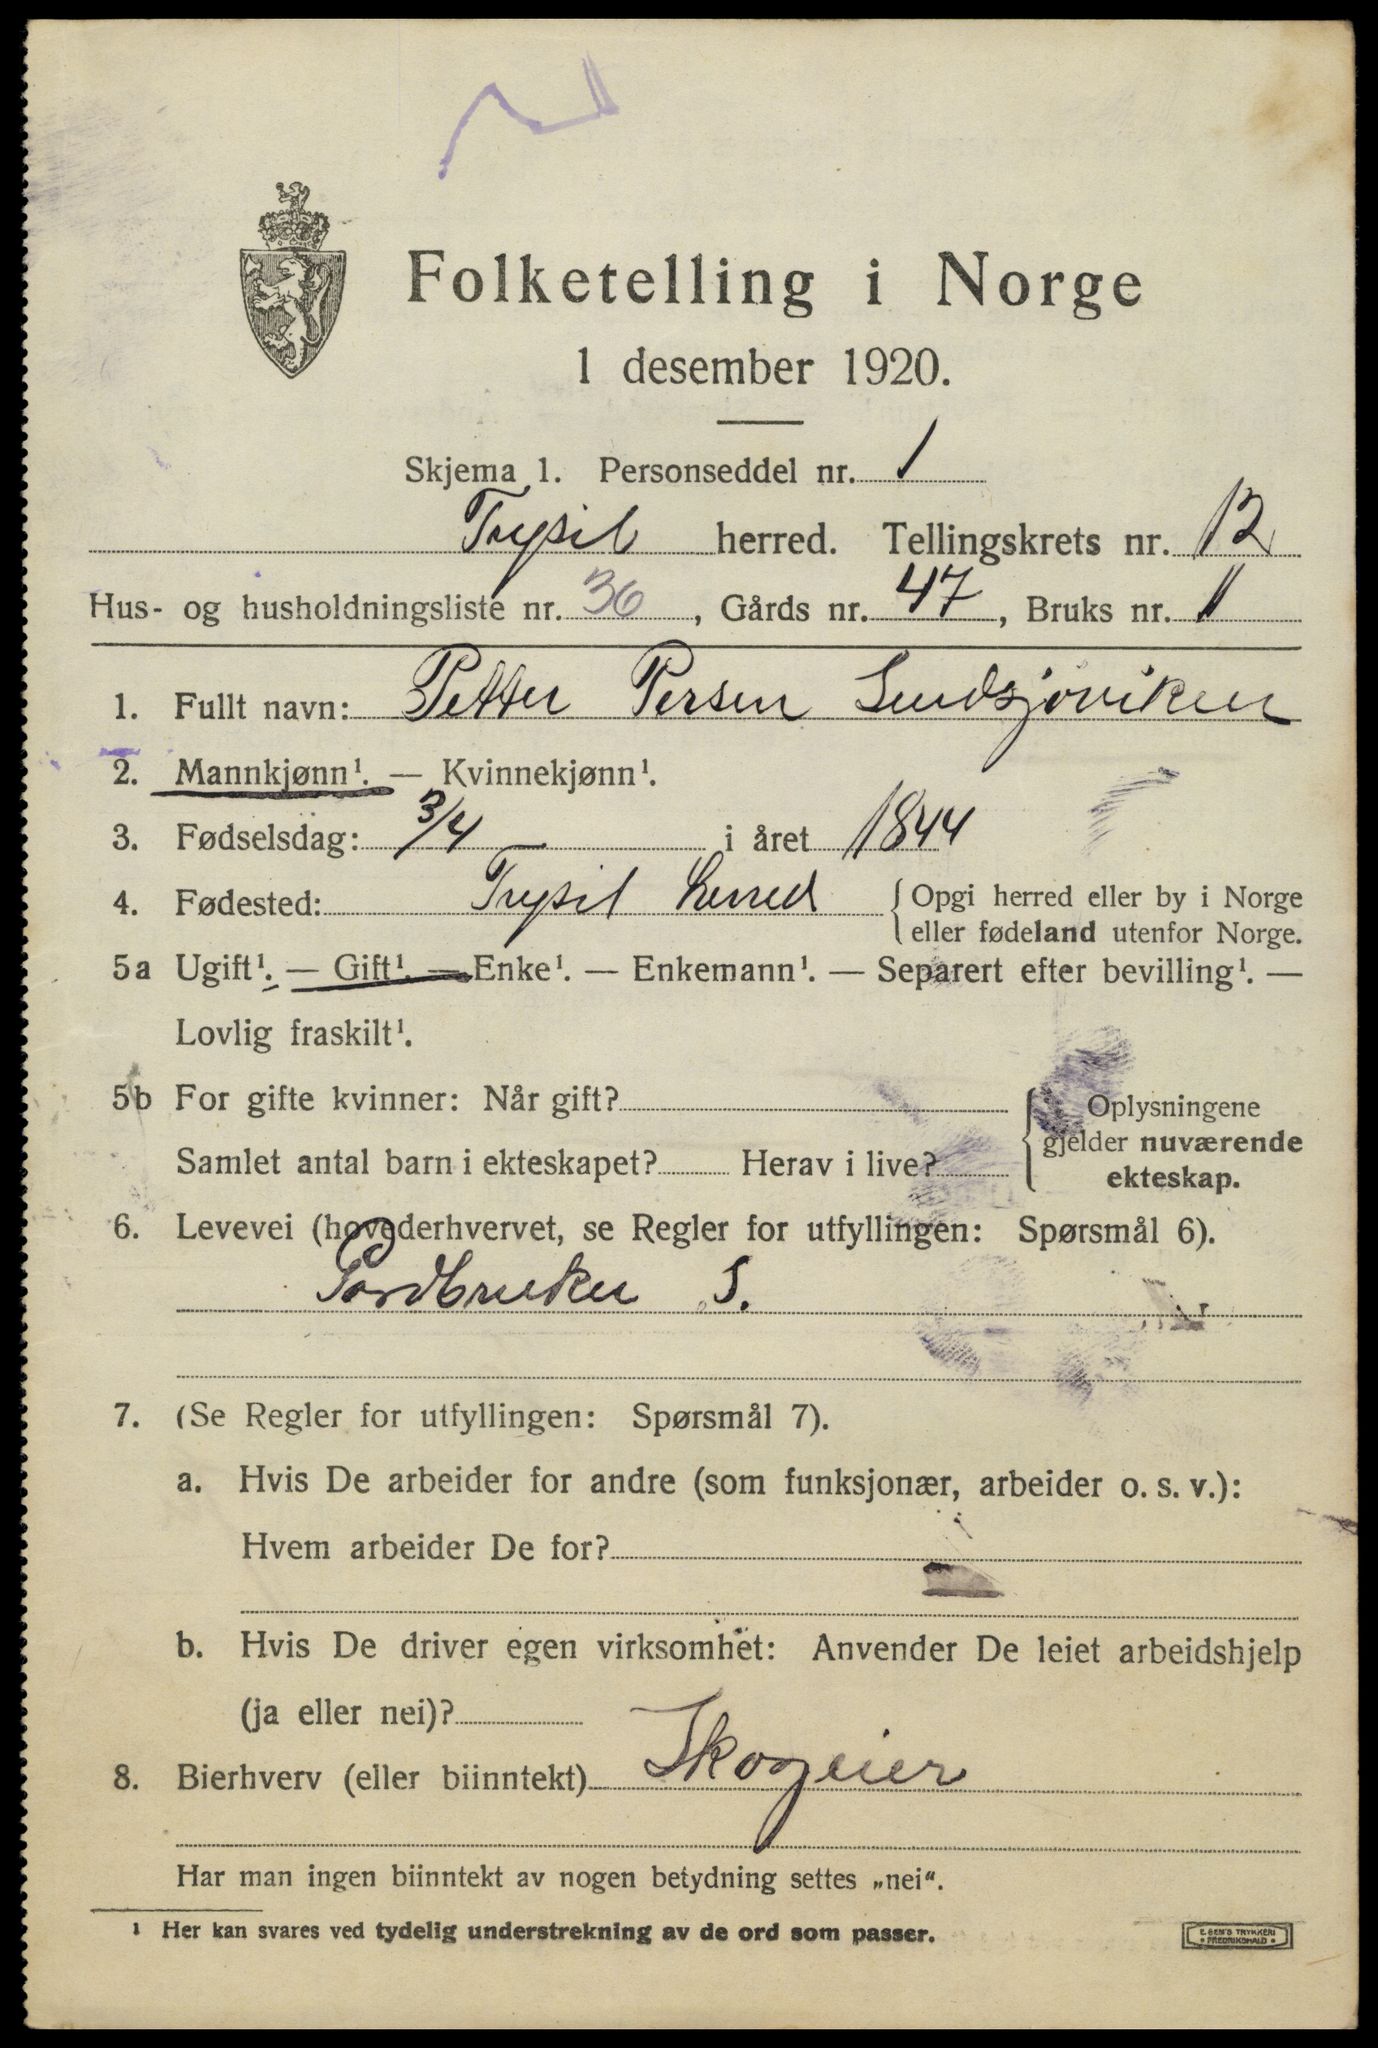 Folketelling i Norge
1 desember 1920.
Skjema 1. Personseddel nr. 1
Trysil herred. Tellingskrets nr. 12
Hus- og husholdningsliste nr. 36, Gårds nr. 47, Bruks nr. 1
1. Fullt navn: Petter Persen Lundsjøviken
2. Mannkjønn¹. — Kvinnekjønn¹.
3. Fødselsdag: 3/4 i året 1844
4. Fødested: Trysil herred { Opgi herred eller by i Norge
eller fødeland utenfor Norge.
5a Ugift¹. — Gift¹. — Enke¹. — Enkemann¹. — Separert efter bevilling¹. —
Lovlig fraskilt¹.
5b For gifte kvinner: Når gift? { Oplysningene
gjelder nuværende
Samlet antal barn i ekteskapet? Herav i live?
ekteskap.
6. Levevei (hovederhvervet, se Regler for utfyllingen: Spørsmål 6).
Gardbruker S.
7. (Se Regler for utfyllingen: Spørsmål 7).
a. Hvis De arbeider for andre (som funksjonær, arbeider o. s. v.):
Hvem arbeider De for?
b. Hvis De driver egen virksomhet: Anvender De leiet arbeidshjelp
(ja eller nei)?
8. Bierhverv (eller biinntekt) Skogeier
Har man ingen biinntekt av nogen betydning settes „nei“.
¹ Her kan svares ved tydelig understrekning av de ord som passer.
E. SEM'S TRYKKERI
• FREDRIKSHALD •